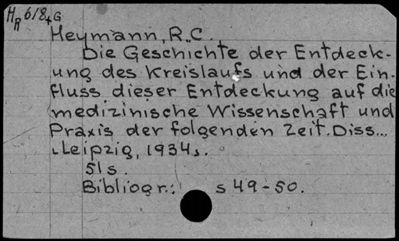 HR 618+G
Heymann, R.C.
Die Geschichte der Entdeck-
ung des Kreislaufs und der Ein-
fluss dieser Entdeckung auf die
medizinische Wissenschaft und
Praxis der folgenden Zeit. Diss...
Leipzig, 1934.
51 s.
Bibliogr.: s 49-50.